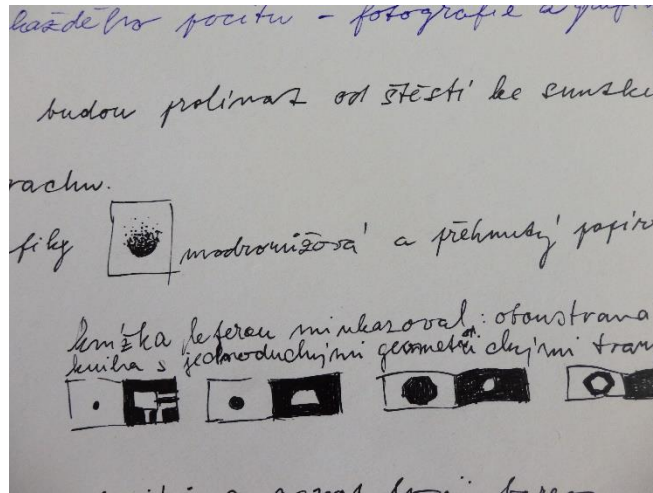 každého pocitu - fotografie a grafi
budou prolínat od štěstí ke smutku
rachu.
fiky modrorůžová a přehnutý papír
knížka kterou mi ukazoval: oboustrana
kniha s jednoduchými geometrickými tvar